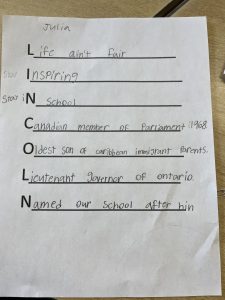 Julia
Life ain't fair
Inspiring
Stay iN School
Canadian member of Parliament 1968
Oldest son of caribbean immigrant parents.
Lieutenant governor of ontario.
Named our school after him